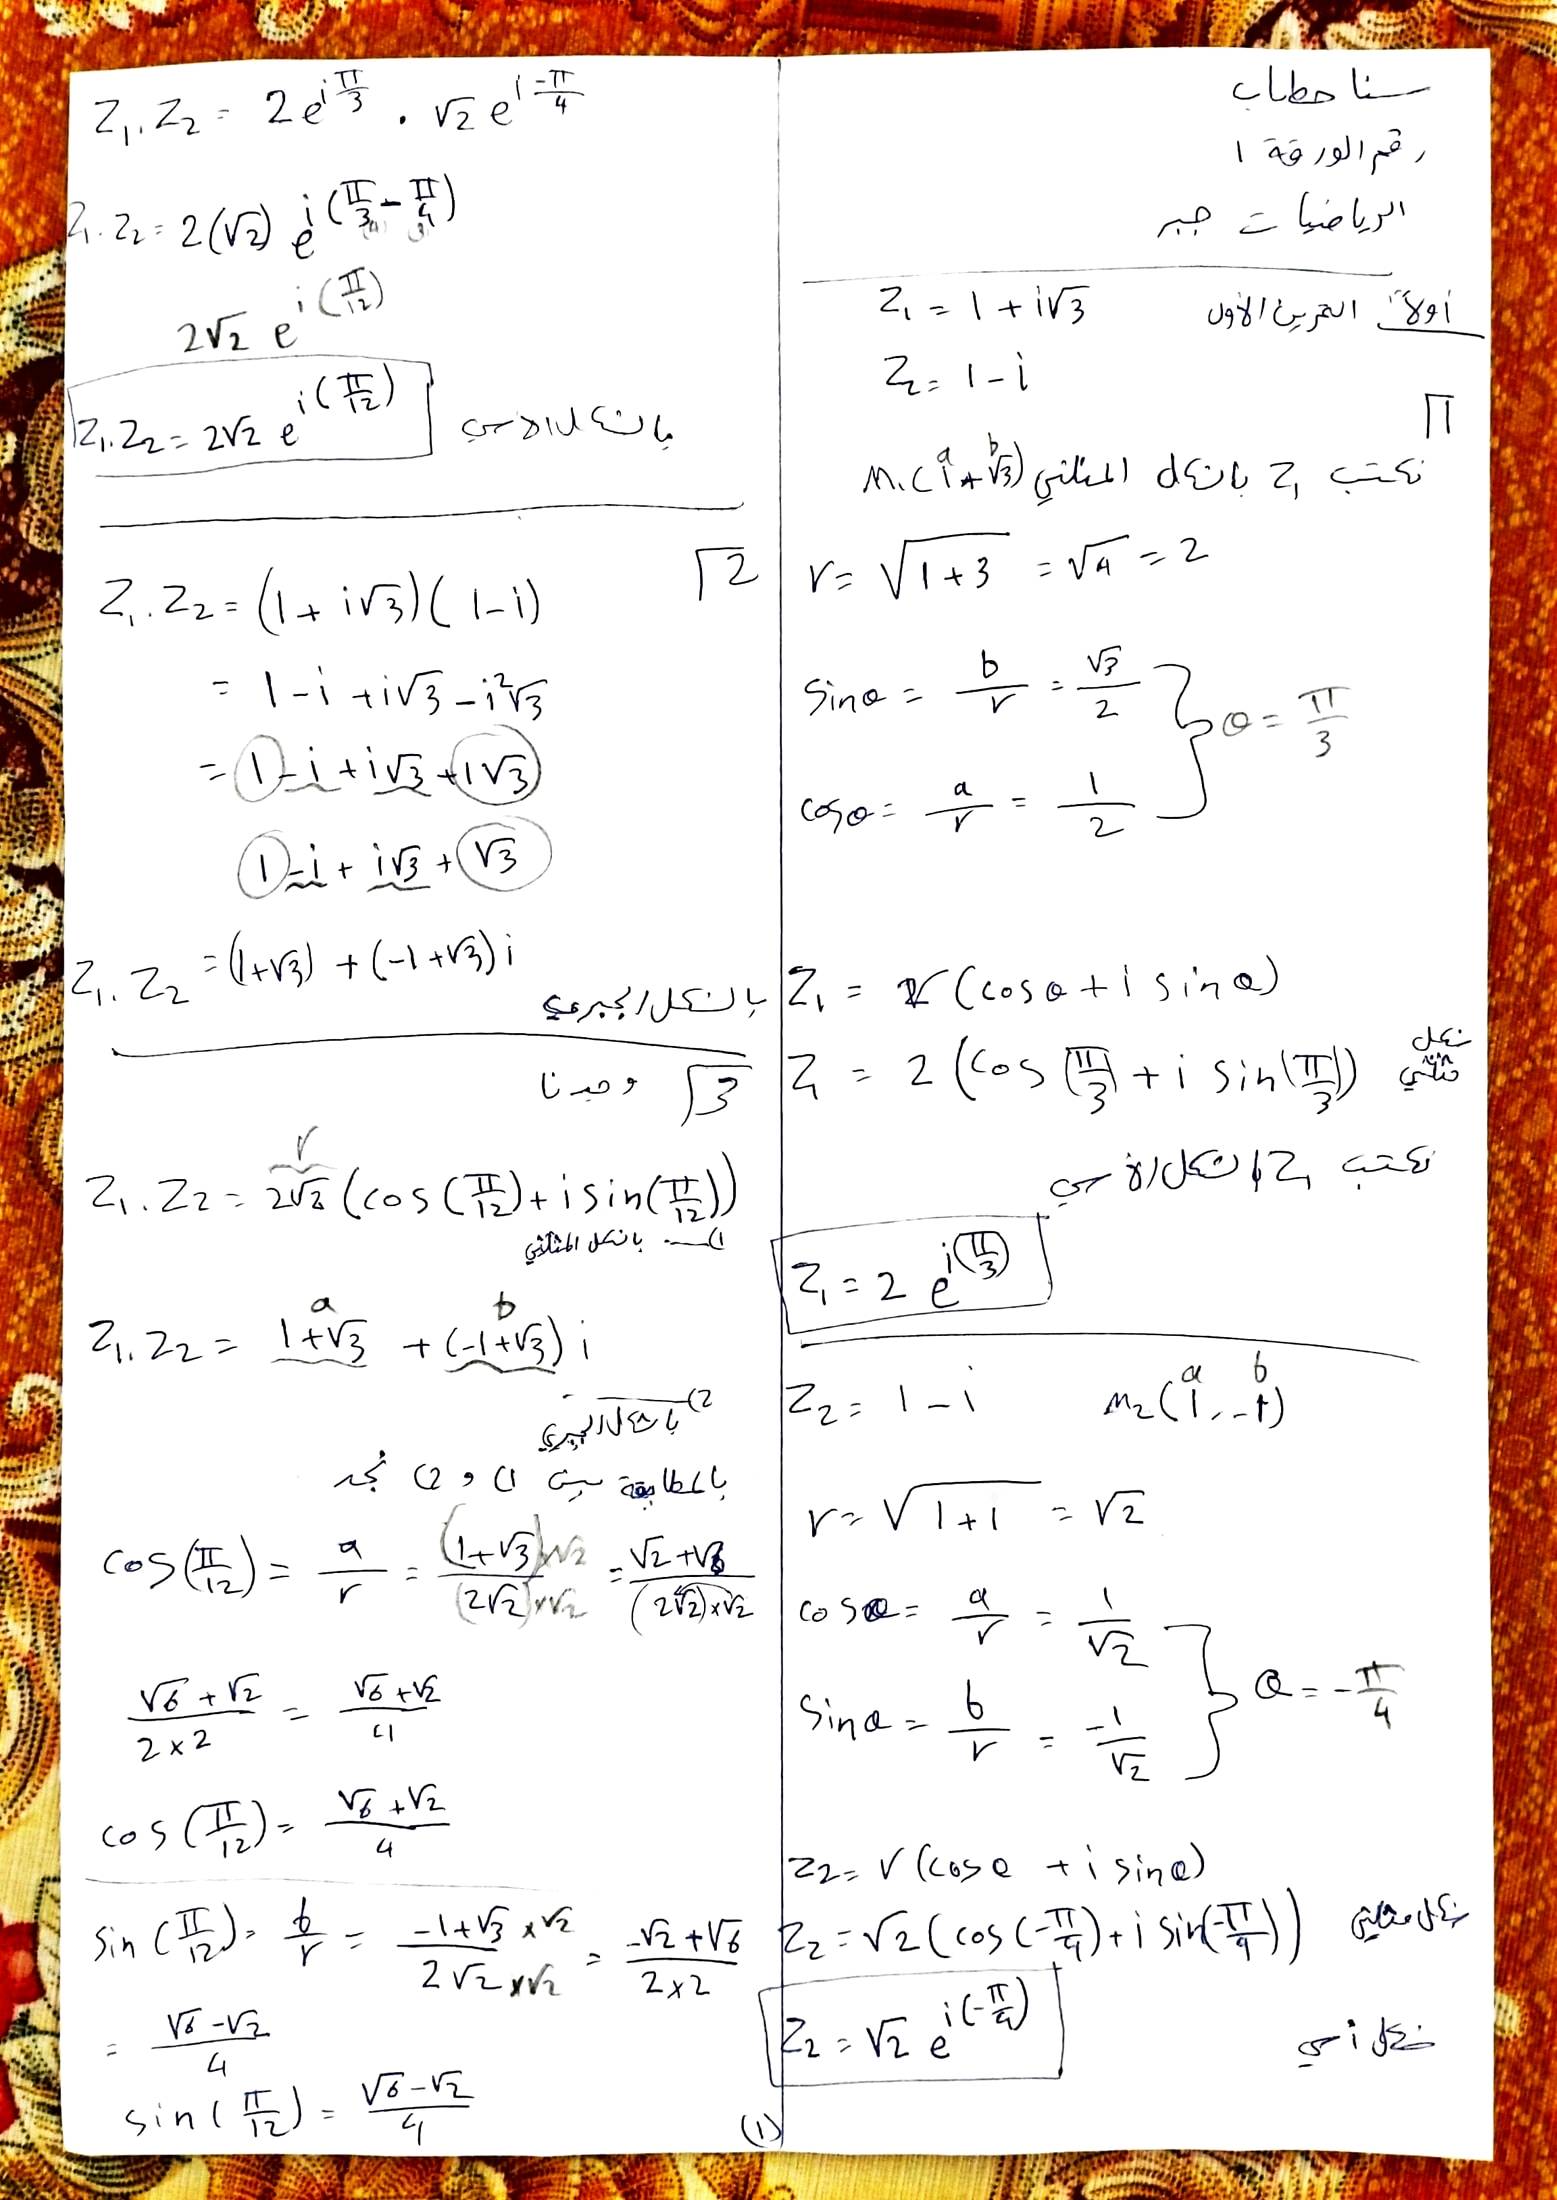 سنا حطاب
رقم الورقة 1
الرياضيات جبر
أولاً: التمرين الأول Z₁ = 1 + i√3
Z₂ = 1 - i
1
نكتب Z₁ بالشكل المثلثي M₁(1, √3) a b
r = √(1+3) = √4 = 2
sin θ = b/r = √3/2
cos θ = a/r = 1/2
θ = π/3
Z₁ = r (cos θ + i sin θ)
Z₁ = 2 (cos(π/3) + i sin(π/3)) شكل مثلثي
نكتب Z₁ بالشكل الأسي
Z₁ = 2 e^{i(π/3)}
Z₂ = 1 - i M₂(1, -1) a b
r = √(1+1) = √2
cos θ = a/r = 1/√2
sin θ = b/r = -1/√2
θ = -π/4
Z₂ = r (cos θ + i sin θ)
Z₂ = √2 (cos(-π/4) + i sin(-π/4)) شكل مثلثي
Z₂ = √2 e^{i(-π/4)} شكل أسي
Z₁.Z₂ = 2e^{iπ/3} . √2 e^{i-π/4}
Z₁.Z₂ = 2(√2) e^{i(π/3 - π/4)}
2√2 e^{i(π/12)}
Z₁.Z₂ = 2√2 e^{i(π/12)} بالشكل الأسي
2
Z₁.Z₂ = (1 + i√3)(1-i)
= 1 - i + i√3 - i²√3
= 1 - i + i√3 + 1√3
1 - i + i√3 + √3
Z₁.Z₂ = (1+√3) + (-1+√3) i
بالشكل الجبري
3 وجدنا
r
Z₁.Z₂ = 2√2 (cos(π/12) + i sin(π/12))
1) بالشكل المثلثي
a b
Z₁.Z₂ = 1+√3 + (-1+√3) i
2) بالشكل الجبري
بالمطابقة بين 1) و 2) نجد
cos(π/12) = a/r = (1+√3)×√2/(2√2)×√2 = √2+√6/(2√2)×√2
√6+√2/2×2 = √6+√2/4
cos(π/12) = √6+√2/4
sin(π/12) = b/r = -1+√3 ×√2/2√2 ×√2 = -√2+√6/2×2
= √6-√2/4
sin(π/12) = √6-√2/4
(1)